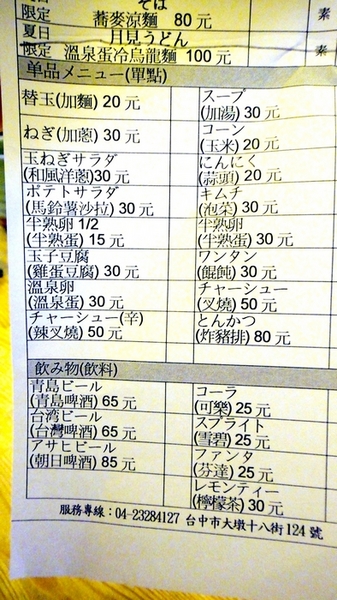 そば
限定 蕎麥涼麵 80 元 素
夏日 月見うどん
限定 溫泉蛋冷烏龍麵 100 元 素
单品メニュー(單點)
替玉(加麵) 20 元
スープ
(加湯) 30 元
ねぎ(加蔥) 30 元
コーン
(玉米) 20 元
玉ねぎサラダ
(和風洋蔥)30 元
にんにく
(蒜頭) 20 元
ポテトサラダ
(馬鈴薯沙拉) 30 元
キムチ
(泡菜) 30 元
半熟卵 1/2
(半熟蛋) 15 元
半熟卵
(半熟蛋) 30 元
玉子豆腐
(雞蛋豆腐) 30 元
ワンタン
(餛飩) 30 元
温泉卵
(溫泉蛋) 30 元
チャーシュー
(叉燒) 50 元
チャーシュー(辛)
(辣叉燒) 50 元
とんかつ
(炸豬排) 80 元
飲み物(飲料)
青島ビール
(青島啤酒) 65 元
コーラ
(可樂) 25 元
台湾ビール
(台灣啤酒) 65 元
スプライト
(雪碧) 25 元
アサヒビール
(朝日啤酒) 85 元
ファンタ
(芬達) 25 元
レモンティー
(檸檬茶) 30 元
服務專線：04-23284127 台中市大墩十八街 124 號